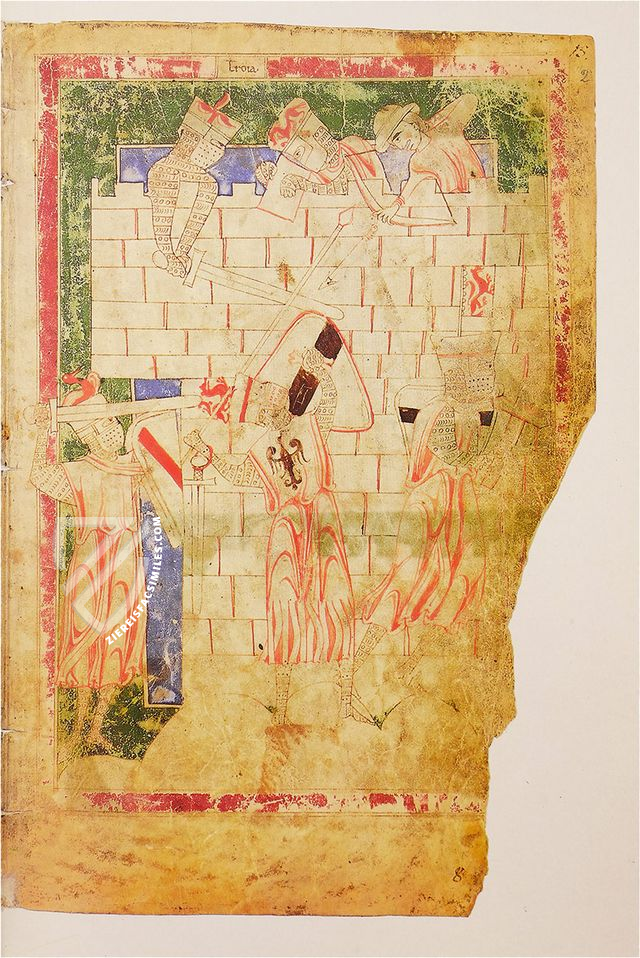 troia
15
2
ZIEREISFACSIMILES.COM
8